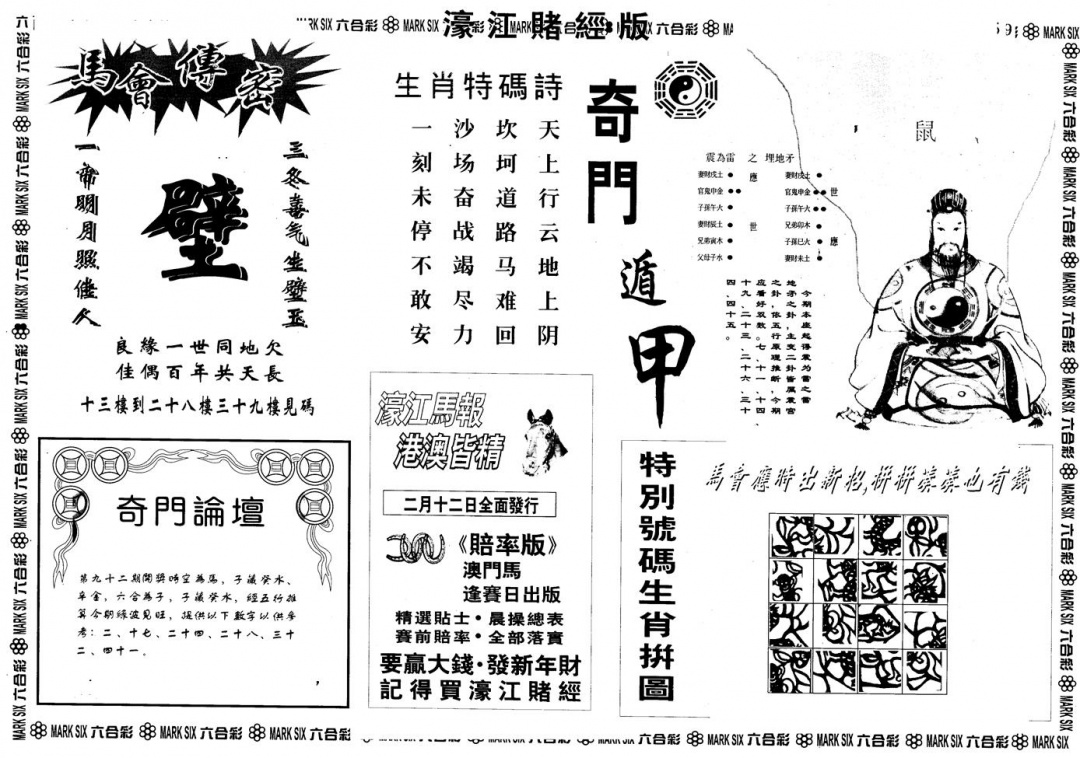 濠江賭經版
MARK SIX 六合彩
馬會傳密
三冬喜气生璧玉
璧
一帘明月照佳人
良緣一世同地欠
佳偶百年共天長
十三樓到二十八樓三十九樓見碼
生肖特碼詩
天上行云地上阴
坎坷道路马难回
沙场奋战竭尽力
一刻未停不敢安
奇門遁甲
鼠
震為雷 之 埋地矛
妻財戌土 應 妻財戌土
官鬼申金 官鬼申金 世
子孫午火 子孫午火
妻財辰土 世 兄弟卯木
兄弟寅木 子孫巳火 應
父母子水 妻財未土
今期本座起得震为雷之雷
地矛之卦,主变二卦皆属震宫
之卦,依五行原理推断,今期
应看好双数。七、十一、十四
十九、二十三、二十六、三十
四、四十五。
濠江馬報
港澳皆精
二月十二日全面發行
《賠率版》
澳門馬
逢賽日出版
精選貼士·晨操總表
賽前賠率·全部落實
要贏大錢·發新年財
記得買濠江賭經
奇門論壇
第九十二期開獎時空為馬,子藏癸水、
辛金,六合為子,子藏癸水,經五行推
算今期綠波見旺,提供以下數字以供參
考:二、十七、二十四、二十八、三十
二、四十一.
特別號碼生肖拼圖
馬會應時出新招,拼拼湊湊也有錢